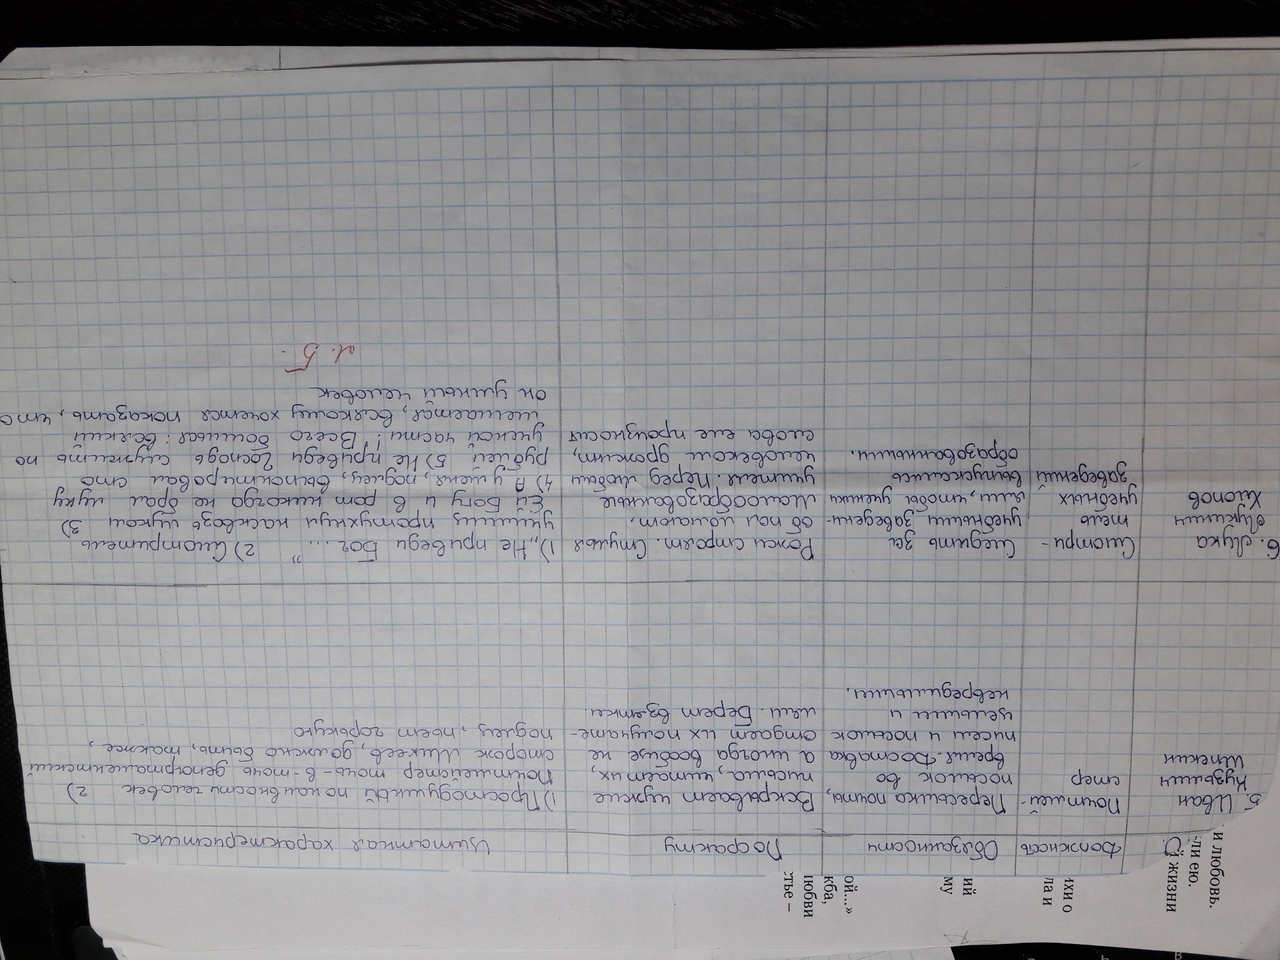 Должность Обязаности По факту Цитатная характеристика
5. Иван
Кузьмич
Шпекин
Почтмей-
стер
Пересылка почты,
посылок во
время. Доставка
писем и посылок
целыми и
невредимыми.
Вскрывает чужие
письма, читает их,
а иногда вообще не
отдает их получате-
лям. Берет взятки.
1) Простодушный по наивности человек 2)
Почтмейстер точь-в-точь департаментский
сторож Михеев, должно быть, также,
подлец, пьет горькую
6. Лука
Лукич
Хлопов
Смотри-
тель
учебных
заведений
Следить за
учебными заведени-
ями, чтобы ученики
выпускались
образованными.
Рожи строят. Стулья
об пол ломают.
Малообразованные
учителя. Перед любым
человеком дрожит,
слова еле произносит
1) „Не приведи Бог ...." 2) Смотритель
училищ протухнул насквозь луком 3)
Ей Богу и в рот никогда не брал луку
4) А у меня, подлец, выпонтировал сто
рублей 5) Не приведи Господь служить по
ученой части! Всего боишься: всякий
мешается, всякому хочется показать, что
он умный человек
и любовь.
ли ею.
й жизни
ихи о
ла и
ий
му
ой...»
кба,
юбви
тье –